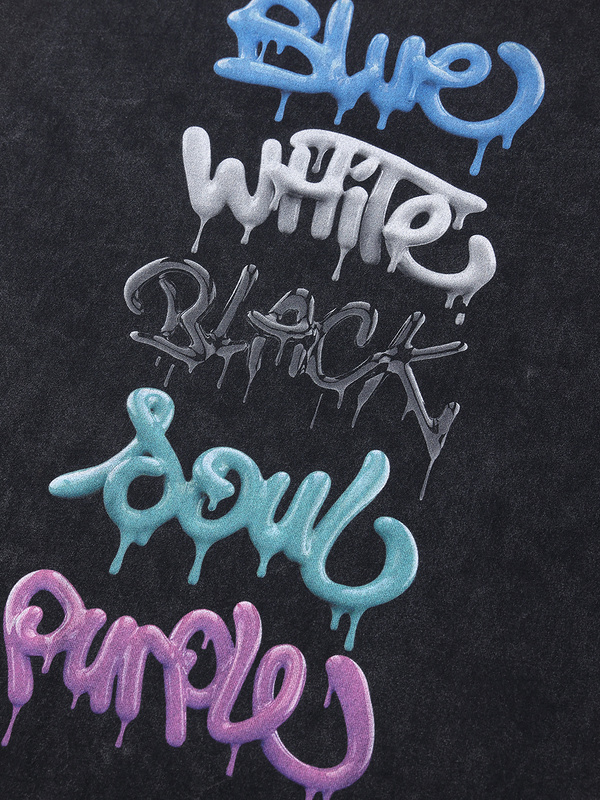 Blue
WHiTe
BLACK
Soul
Purple